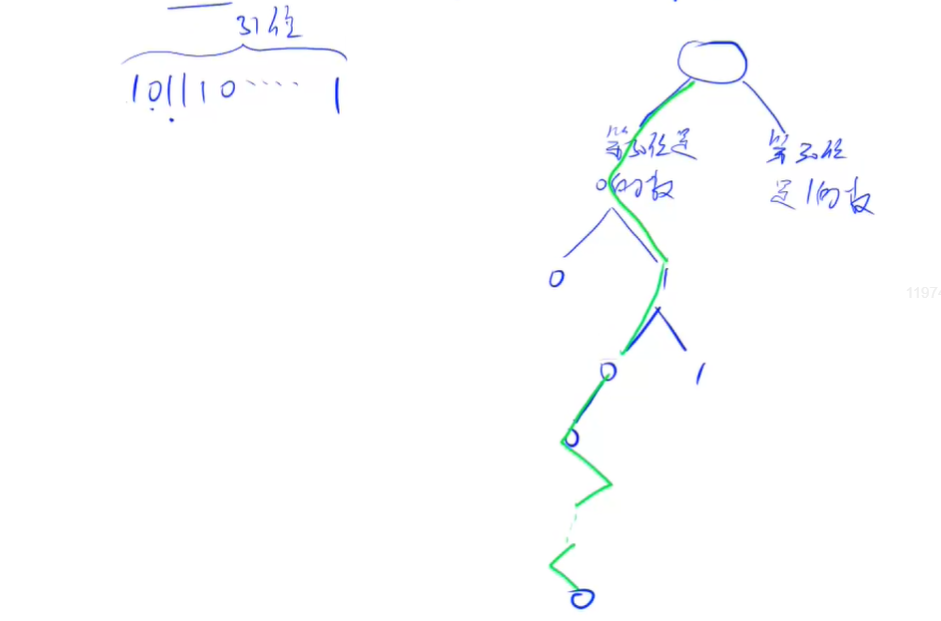 31位
101110····1
第30位是
0的数
第30位
是1的数
0 1
0 1
0
0
1197